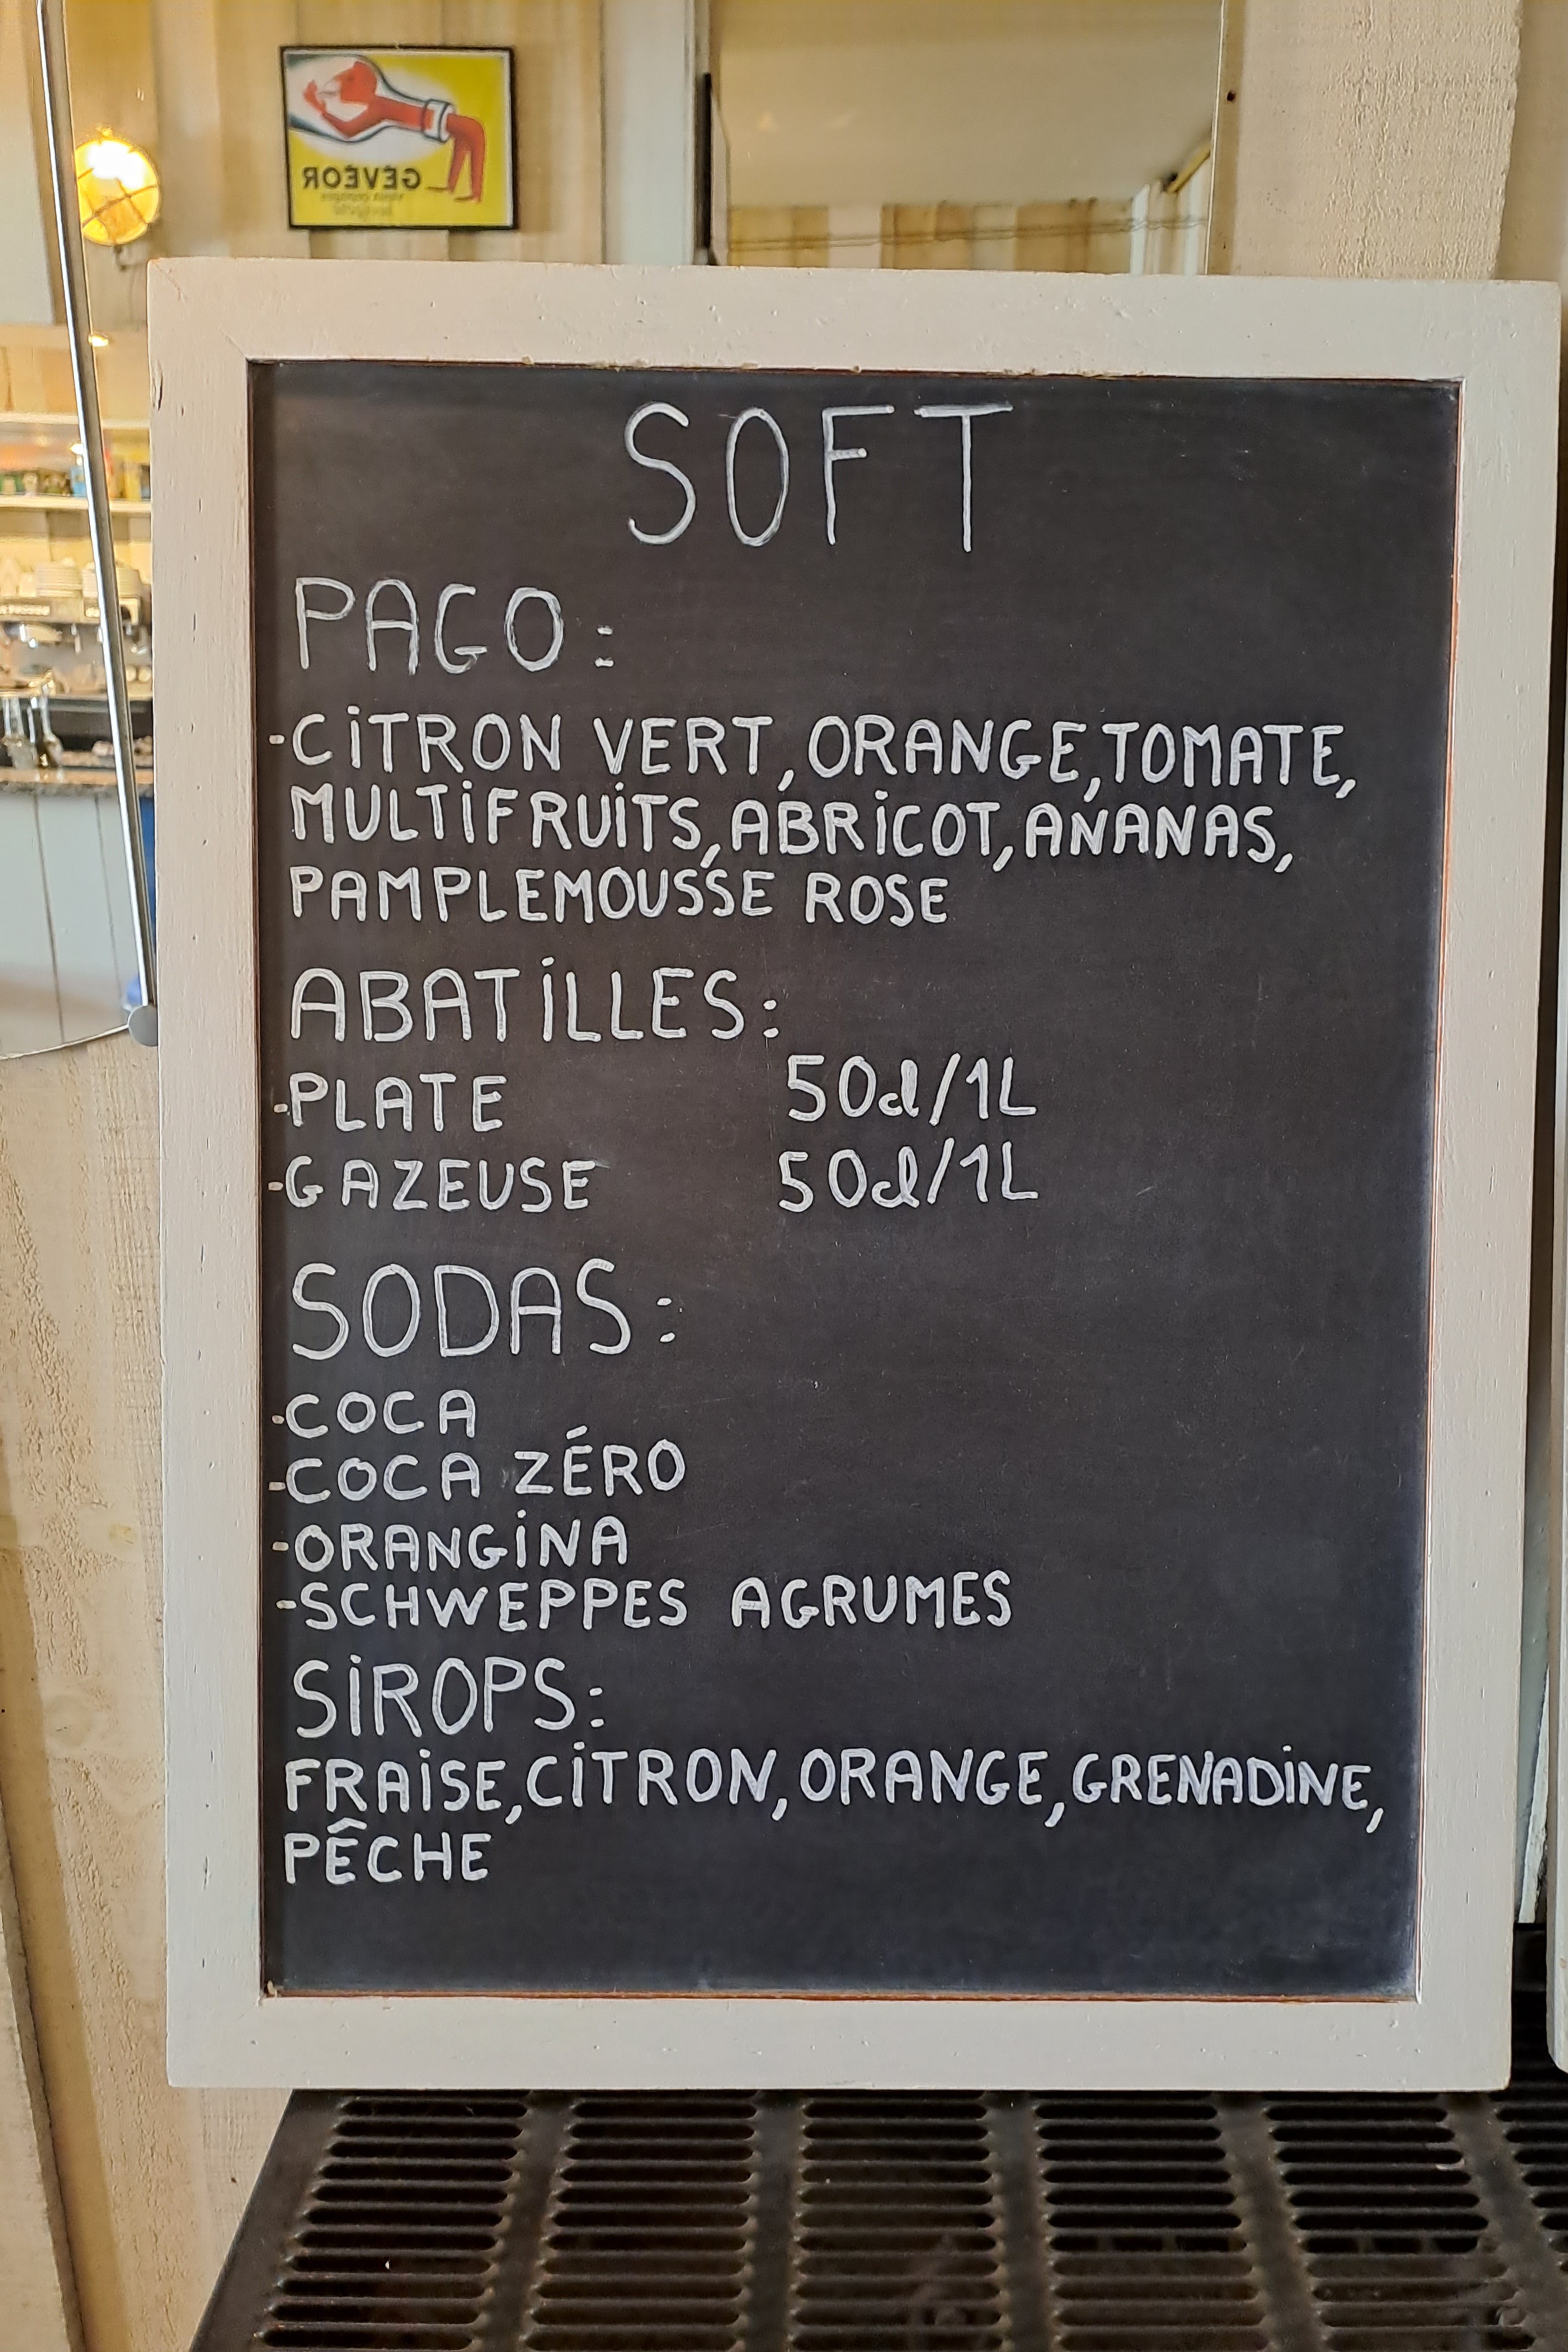 GÉVÉOR
SOFT
PAGO:
-CITRON VERT, ORANGE, TOMATE,
MULTIFRUITS, ABRICOT, ANANAS,
PAMPLEMOUSSE ROSE
ABATILLES:
-PLATE 50cl/1L
-GAZEUSE 50cl/1L
SODAS:
-COCA
-COCA ZÉRO
-ORANGINA
-SCHWEPPES AGRUMES
SIROPS:
FRAISE, CITRON, ORANGE, GRENADINE,
PÊCHE